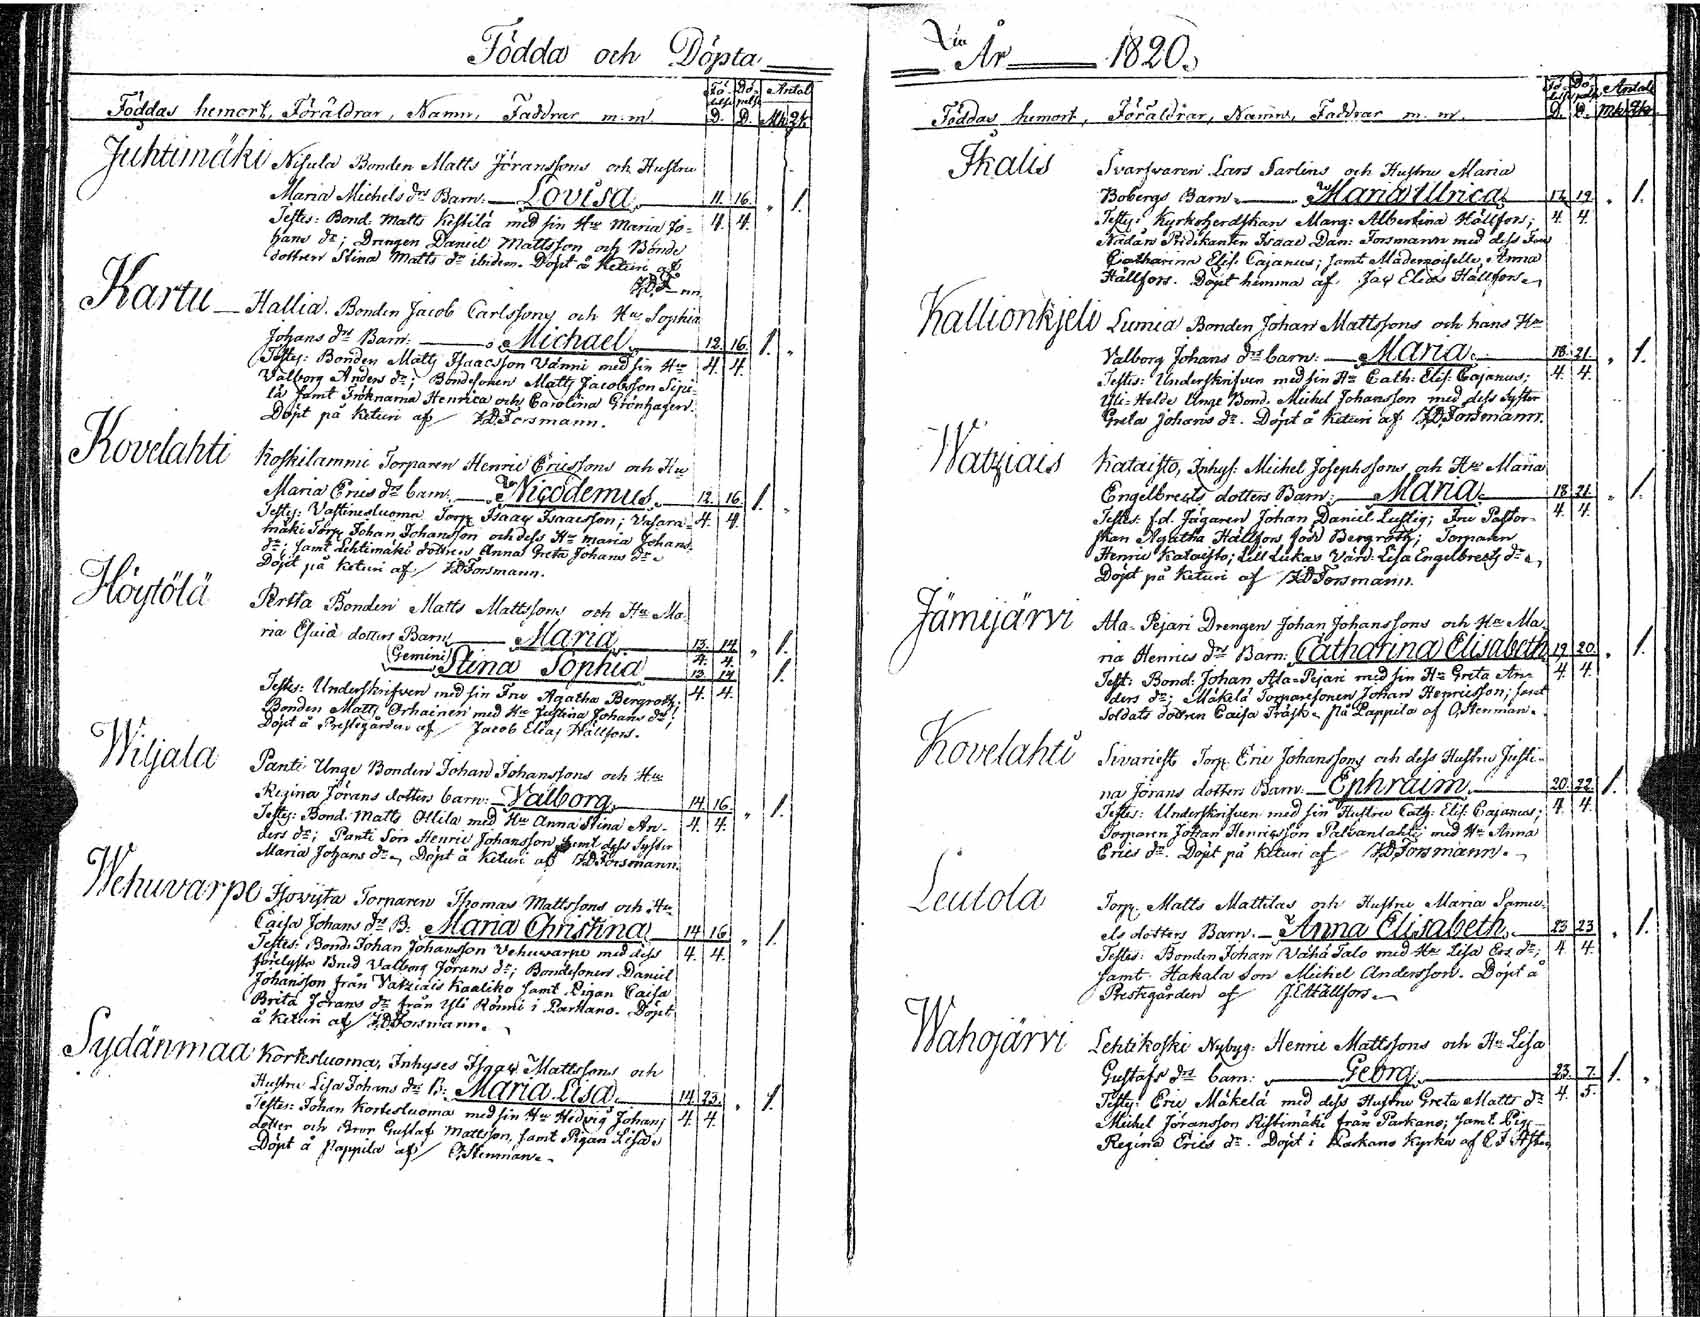 Födda och Döpta
Föddas hemort, Föräldrar, Namn, Faddrar m.m.
Fö- Dö- Antal
delse pelse
D. D. Mk Qk
Juhtimäki Nisula Bonden Matts Jöranssons och Hustru
Maria Michels drs Barn. Lovisa 11. 16. " 1.
4. 4.
Testes: Bond. Matts Keskilä med sin Hu Maria Jo-
hans dr; Drengen Daniel Mattsson och Bonde
dottren Stina Matts dr ibidem. Döpt å Keturi af
Kartu Hallia. Bonden Jacob Carlssons och Hu Sophia
Johans drs Barn: Michael 12. 16. 1. "
4. 4.
Testes: Bonden Matts Isaacsson Vänni med sin Hu
Valborg Anders dr; Bondesonen Matts Jacobsson Sipi-
lä samt Fröknarna Henrica och Carolina Grönhagen.
Döpt på Keturi af I.D.Forsmann.
Kovelahti Koskilammi Torparen Henric Ericssons och Hu
Maria Erics drs barn. Nicodemus 12. 16. 1. "
4. 4.
Testes: Vastinesluoma Torp. Isaac Isaacsson; Vasara-
mäki Torp. Johan Johansson och dess Hu Maria Johans
dr; samt Lehtimäki dottren Anna Greta Johans dr.
Döpt på Keturi af I.D.Forsmann.
Höytölä Pertta Bonden Matts Mattssons och Hu Ma-
ria Esaiä dotters Barn Maria 13. 14. " 1.
4. 4.
(Gemini) Stina Sophia 13. 14. 1.
4. 4.
Testes: Underskrifven med sin Fru Agatha Bergroth;
Bonden Matts Orhainen med Hu Justina Johans dr;
Döpt å Prestegården af Jacob Elias Hällfors.
Wiljala Panti Unge Bonden Johan Johanssons och Hu
Regina Jörans dotters barn: Valborg 14. 16. " 1.
4. 4.
Testes: Bond. Matts Ollila med Hu Anna Stina An-
ders dr; Panti Son Henric Johansson samt dess Syster
Maria Johans dr. Döpt å Keturi af I.D.Forsmann.
Wehuvarpe Torparen Thomas Mattssons och Hu
Caisa Johans drs B. Maria Christina 14 16 " 1.
4. 4.
Testes: Bond. Johan Johansson Vehuvarpe med dess
förelysta Brud Valborg Jörans dr; Bondesonen Daniel
Johansson från Vatziais Kaaliko samt Pigan Caisa
Brita Jörans dr från Yli Rönni i Parkano. Döpt
å Keturi af I.D.Forsmann.
Sydänmaa Kortesluoma, Inhyses Isaac Mattssons och
Hustru Lisa Johans drs B: Maria Lisa 14 23. " 1.
4. 4.
Testes: Johan Kortesluoma med sin Hu Hedvig Johans
dotter och Bror Gustaf Mattsson, samt Pigan Lisa.
Döpt å Pappila af O.Stenman.
År 1820.
Föddas hemort, Föräldrar, Namn, Faddrar m.m.
Fö- Dö- Antal
delse pelse
D. D. Mk Qk
Ikalis Svarfvaren Lars Tarlins och Hustru Maria
Bobergs Barn. Maria Ulrica 17. 19. " 1.
4. 4.
Testes: Kyrkoherdskan Marg: Albertina Hällfors;
Nådår Predikanten Isaac Dan: Forsmann med dess Fru
Catharina Elis. Cajanus; samt Mademoiselle Anna
Hällfors. Döpt hemma af Jac Elias Hällfors.
Kallionkjeli Lumia Bonden Johan Mattssons och hans Hu
Valborg Johans drs barn: Maria 18. 21. " 1.
4. 4.
Testes: Underskrifven med sin Hu Cath: Elis. Cajanus;
Yli-Helde Unge Bond. Michel Johansson med dess Syster
Greta Johans dr. Döpt å Keturi af I.D.Forsmann.
Watziais Kataisto, Inhys: Michel Josephssons och Hu Maria
Engelbrects dotters Barn: Maria 18. 21. " 1.
4. 4.
Testes: f.d. Jägaren Johan Daniel Lustig; Fru Pastor-
skan Agatha Hällfors född Bergroth; Torparen
Henric Kataisto; Lill Lukas Värd: Lisa Engelbrects dr.
Döpt på Keturi af I.D.Forsmann.
Jämijärvi Ala-Pejari Drengen Johan Johanssons och Hu Ma-
ria Henrics drs Barn: Catharina Elisabeth 19 20. " 1.
4. 4.
Test: Bond: Johan Ala-Pejari med sin Hu Greta An-
ders dr; Mäkelä Torparesonen Johan Henricsson; samt
Soldats dottren Caisa Träsk. på Pappila af O.Stenman.
Kovelahti Sivariest Torp. Eric Johanssons och dess Hustru Justi-
na Jörans dotters Barn. Ephraim 20. 22. 1.
4. 4.
Testes: Underskrifven med sin Hustru Cath: Elis. Cajanus;
Torparen Johan Henricsson Palvanlahti med Hu Anna
Erics dr. Döpt på Keturi af I.D.Forsmann.
Leutola Torp. Matts Mattilas och Hustru Maria Samu-
els dotters Barn. Anna Elisabeth 23 23 " 1.
4. 4.
Testes: Bonden Johan Vähä Talo med Hu Lisa Ers dr;
samt Hakala Son Michel Andersson. Döpt å
Prestegården af J.E.Hällfors.
Wahojärvi Lehtikoski Nybyg: Henric Mattssons och Hu Lisa
Gustafs drs barn: Georg 23. 7. 1. "
4. 5.
Testes: Eric Mäkelä med dess Hustru Greta Matts dr
Michel Jöransson Ristimäki från Parkano; samt Pig.
Regina Erics dr. Döpt i Parkano Kyrka af